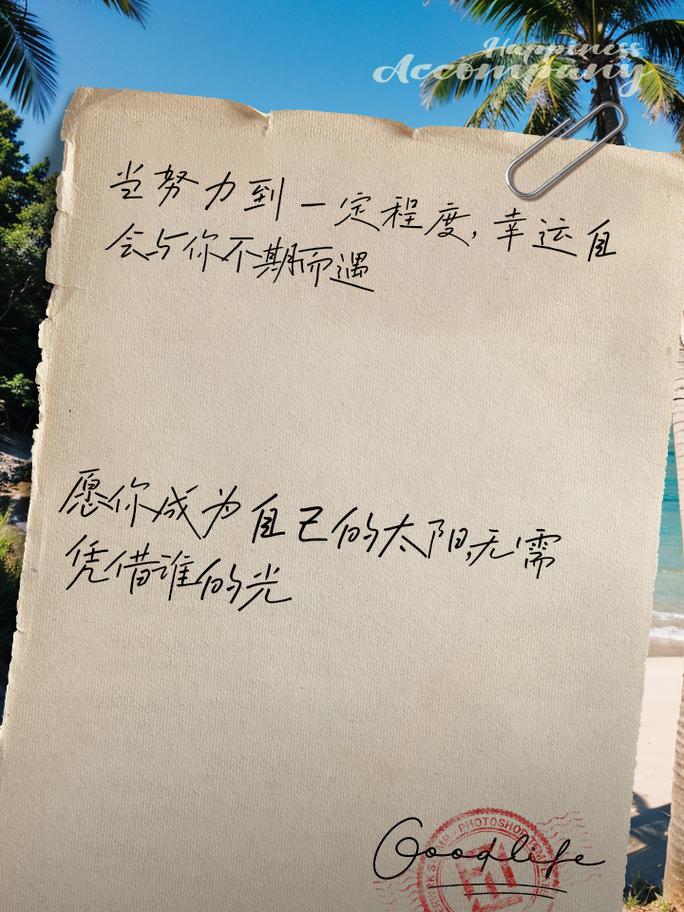 Happiness
Accompany
当努力到一定程度,幸运自
会与你不期而遇
愿你成为自己的太阳,无需
凭借谁的光
PHOTOSHOP
Goodlife